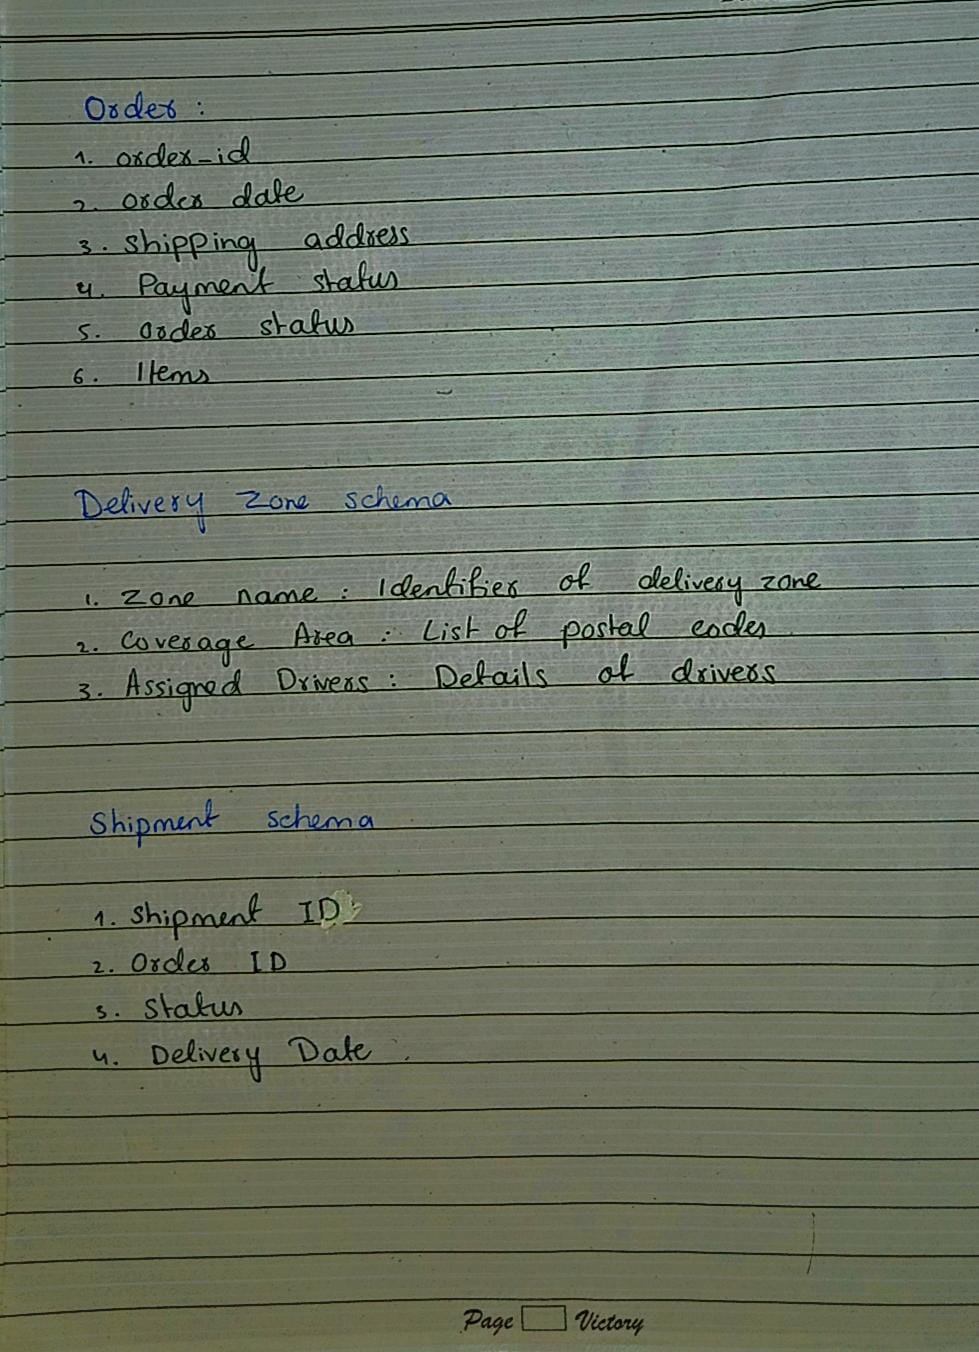 Order :
1. order-id
2. order date
3. shipping address
4. Payment status
5. order status
6. Items
Delivery Zone schema
1. Zone name : Identifier of delivery zone
2. Coverage Area : List of postal codes
3. Assigned Drivers : Details of drivers
Shipment schema
1. Shipment ID
2. Order ID
3. Status
4. Delivery Date
Page Victory